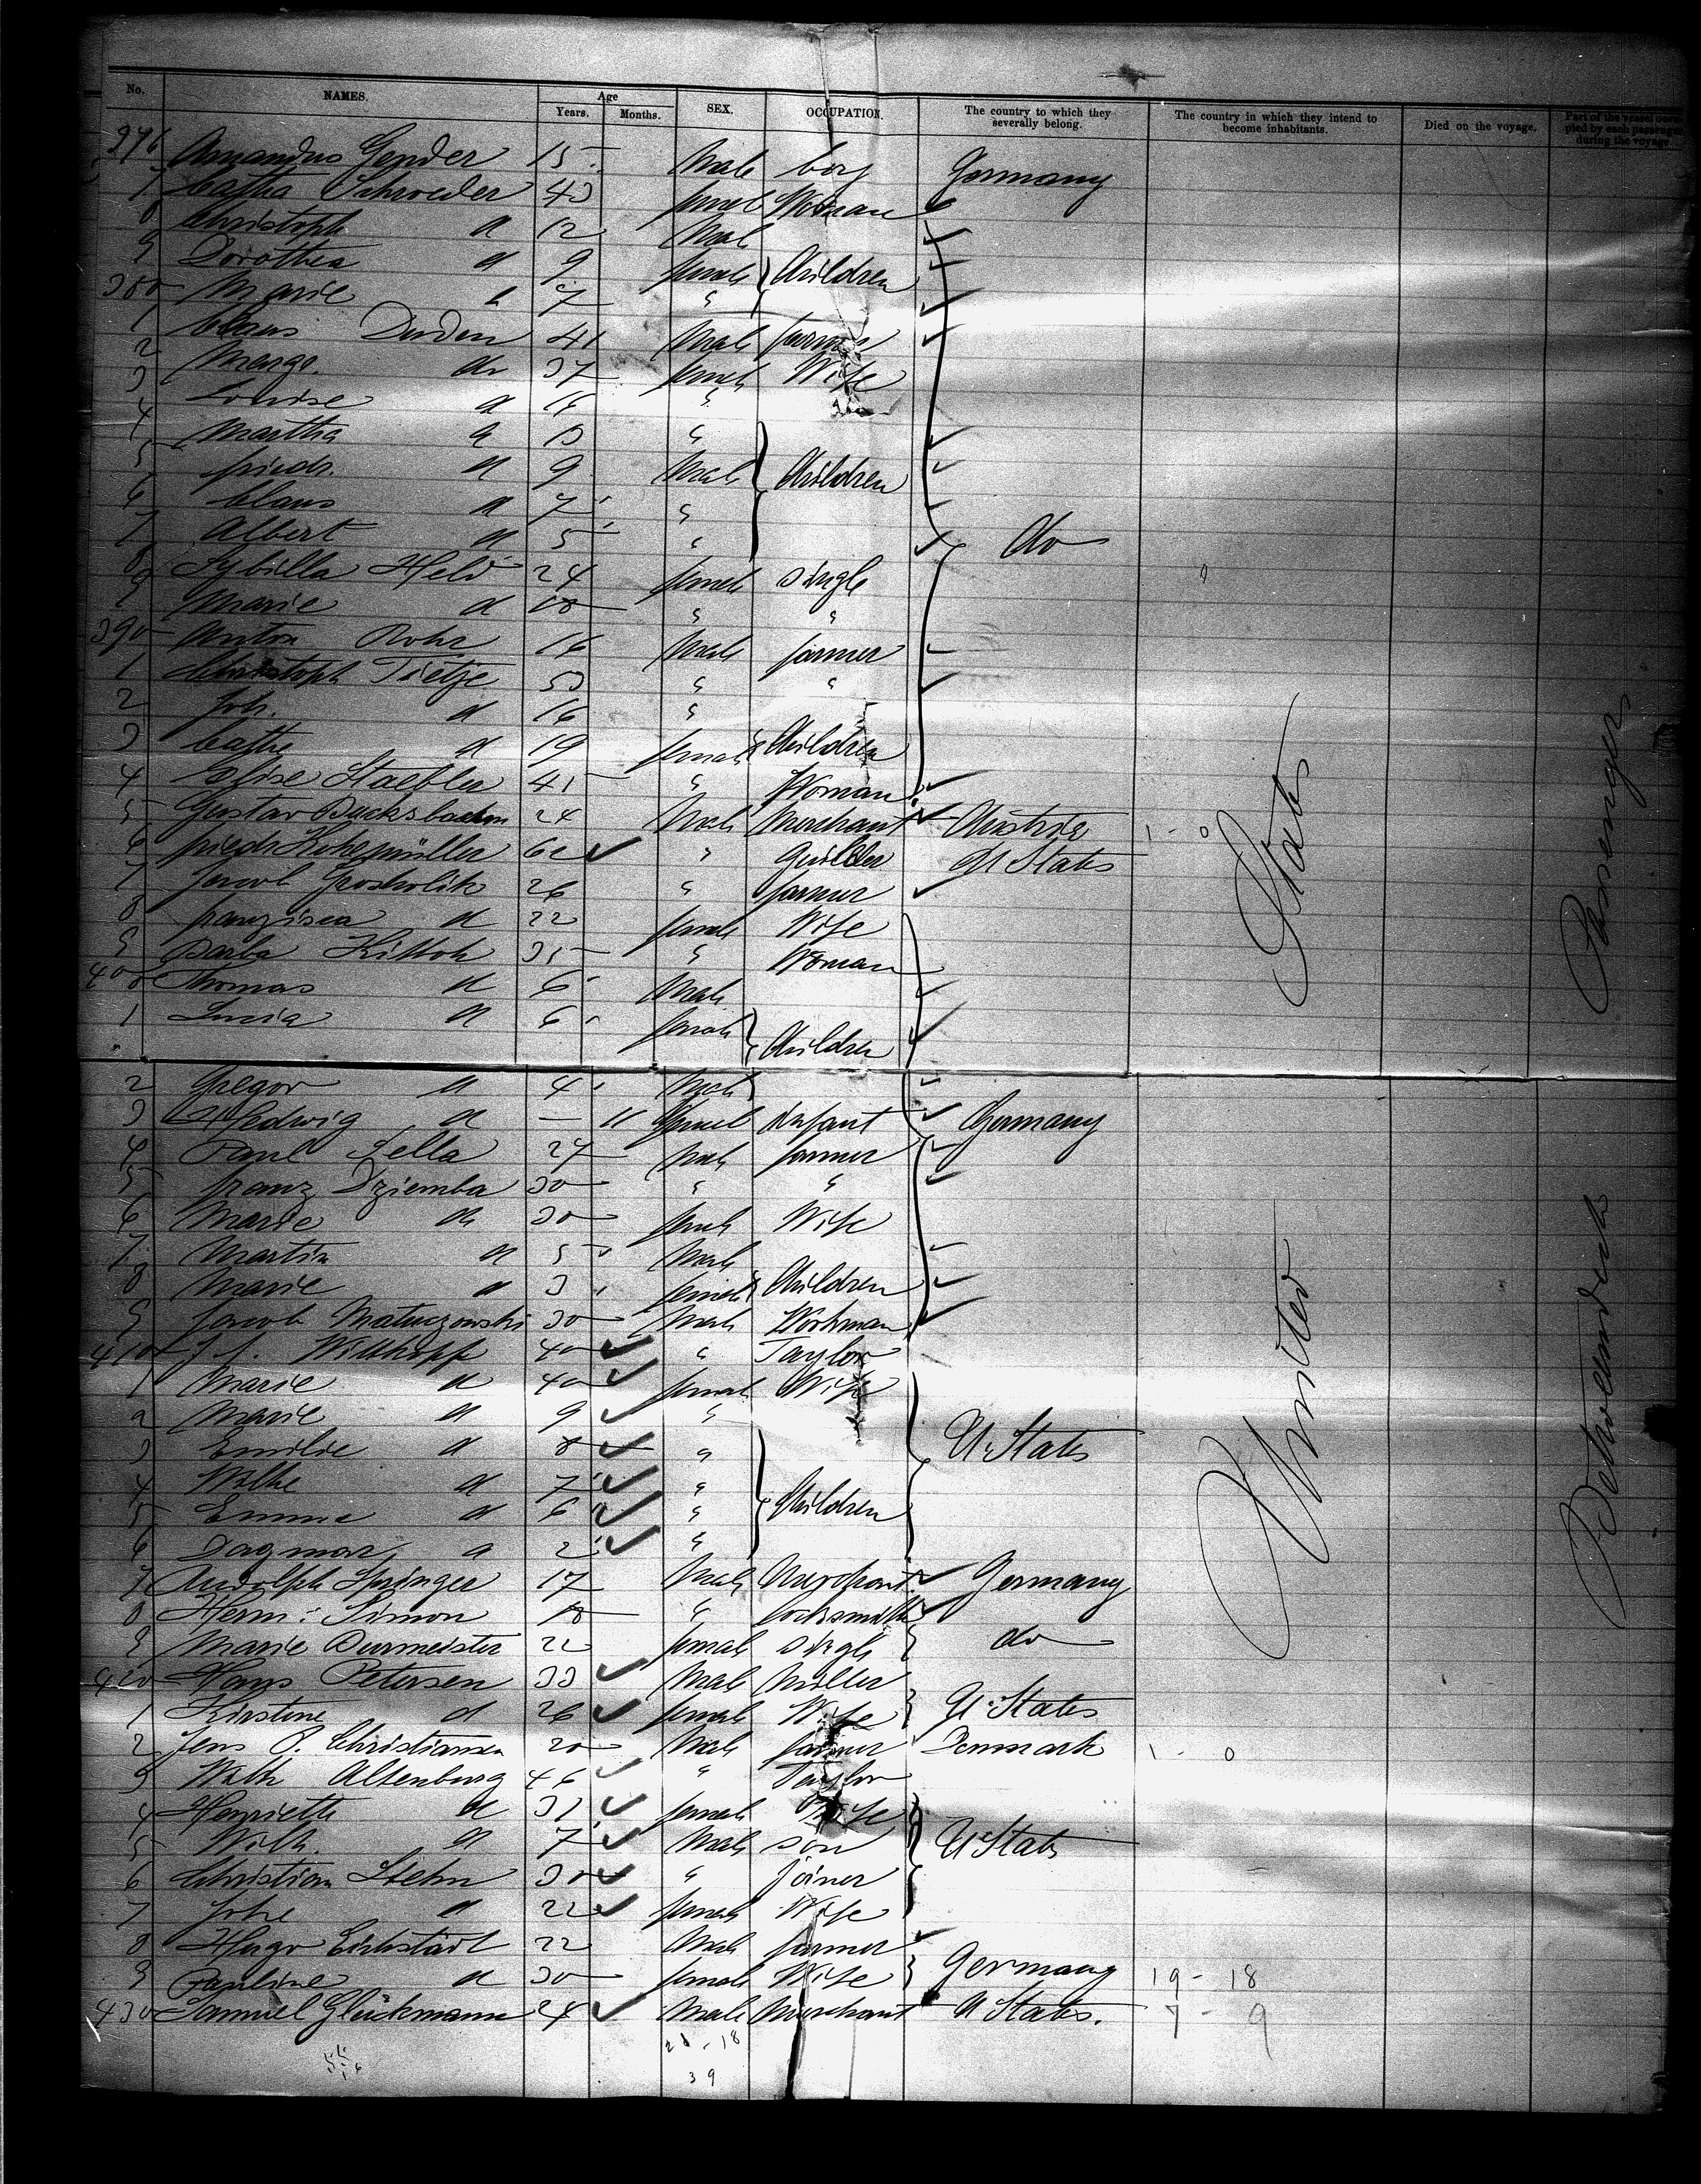 No. NAMES. Age Years. Months. SEX. OCCUPATION. The country to which they severally belong. The country in which they intend to become inhabitants. Died on the voyage. Part of the vessel occupied by each passenger during the voyage.
376 Amandus Gender 15 Male boy Germany
7 Catha Schroeder 43 femal Woman
8 Christoph d 12 Mal
9 Dorothea d 9 femal Children
380 Marie d 7 "
1 Claus Durden 41 Male farmer
2 Margr. do 37 femal Wife
3 Louise d 14 "
4 Martha d 13 "
5 friedr. d 9 Male Children
6 Claus d 7 "
7 Albert d 5 " do
8 Sybilla Held 24 femal single
9 Marie d 18 " "
390 Anton Rohr 16 Male farmer
1 Christoph Tietje 53 " "
2 Joh. d 16 "
3 Cathe d 19 female Children
4 Elise Staebler 41 " Woman
5 Gustav 24 Male Merchant Austria 1 - 0
6 friedr " U States
7 Jacob Grosholik 26 " farmer
8 franzisca d 22 female Wife
9 Barba Kittoh 35 " Woman
400 Thomas d 6 Male
1 Lucia d 6 female Children
2 Gregor d 4 Male
3 Hedwig d — 11 femal Infant Germany
4 Paul Sella 27 Male farmer
5 franz Dziemba 30 " "
6 Marie do 30 female Wife
7 Martin d 5 Male
8 Marie d 3 female Children
9 Jacob Matuczowski 30 Male Workman
410 J. f. Witthopf 40 " Taylor
1 Marie d 40 female Wife
2 Marie d 9 "
3 Emilie d 8 " U. States
4 Wilhe d 7 "
5 Emma d 6 " Children
6 Dagmar d 2 "
7 Rudolph Springer 17 Male Merchant Germany
8 Herm: Simon 18 " Locksmith
9 Marie Burmeister 22 female single do
420 Hans Petersen 33 Male Miller
1 Kirstine d 26 female Wife U States
2 Jens P. Christiansen 20 Male farmer Denmark 1 - 0
3 Wilh Altenburg 46 " Taylor
4 Henriette d 31 female Wife
5 Wilh. d 7 Male son U States
6 Christian Stehn 30 " joiner
7 Johe d 22 female Wife
8 Hugo Eichstädt 22 Male farmer
9 Pauline d 30 female Wife Germany 19 - 18
430 Samuel Glückmann 24 Male Merchant U States. 7 - 9
United States
Betweendecks Passenger
21 - 18
39